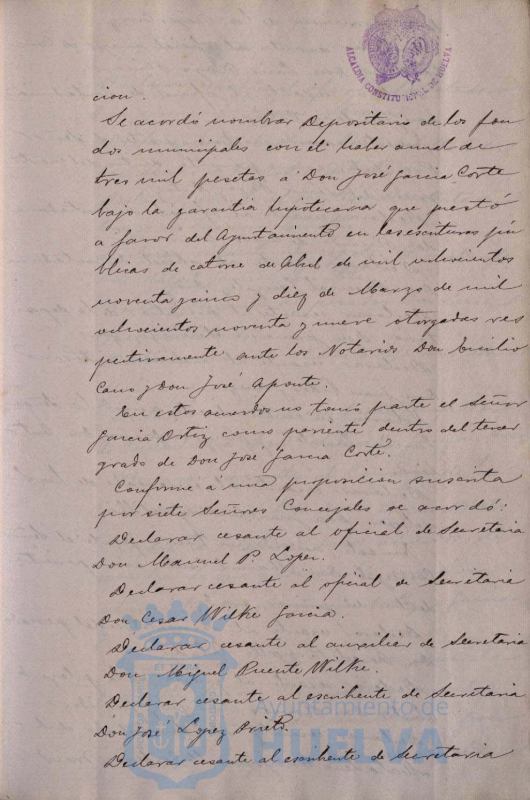 ALCALDIA CONSTITUCIONAL DE HUELVA
cion.
Se acordó nombrar Depositario de los fon
dos municipales con el haber anual de
tres mil pesetas á Don José Garcia Corte
bajo la garantia hipotecaria que prestó
a favor del Ayuntamiento en las escrituras pú
blicas de catorce de Abril de mil ochocientos
noventa y cinco y diez de Marzo de mil
ochocientos noventa y nueve otorgadas res
pectivamente ante los Notarios Don Emilio
Cano y Don José Aponte.
En estos acuerdos no tomó parte el Señor
Garcia Ortiz como pariente dentro del tercer
grado de Don José Garcia Corte.
Conforme a una proposicion suscrita
por siete Señores Concejales se acordó:
Declarar cesante al oficial de Secretaria
Don Manuel P. Lopez.
Declarar cesante al oficial de Secretaria
Don Cesar Wilke Garcia.
Declarar cesante al auxiliar de Secretaria
Don Miguel Puente Wilke.
Declarar cesante al escribiente de Secretaria
Don José Lopez Prieto.
Declarar cesante al escribiente de Secretaria
Ayuntamiento de
HUELVA